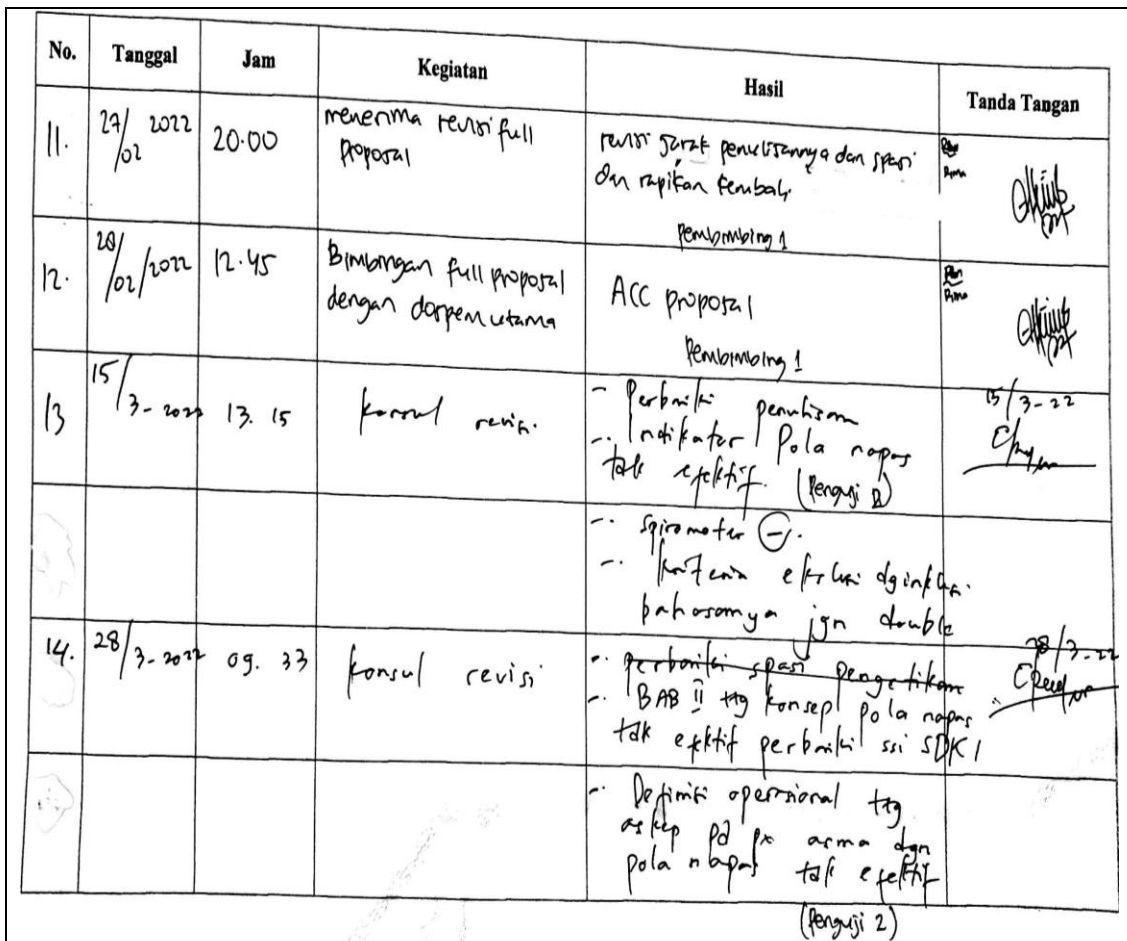 No. Tanggal Jam Kegiatan Hasil Tanda Tangan
11. 27/02 2022 20.00 menerima revisi full proposal
revisi jarak penulisannya dan spasi
dan rapikan kembali
Pembimbing 1
Rima
12. 28/02/2022 12.45 Bimbingan full proposal
dengan dospem utama
ACC proposal
Pembimbing 1
Rima
13 15/3-2022 13.15 konsul revisi.
- Perbaiki penulisan
- Indikator pola napas
tak efektif. (Penguji 2)
15/3-22
- Spirometer (-).
- kriteria eksklusi dg inklusi
bahasamya jgn double
14. 28/3-2022 09.33 konsul revisi
- perbaiki spasi pengetikan
- BAB II ttg konsep pola napas
tdk efektif perbaiki ssi SDKI
28/3-22
- Definisi operasional ttg
askep pd px asma dgn
pola napas tak efektif
(Penguji 2)